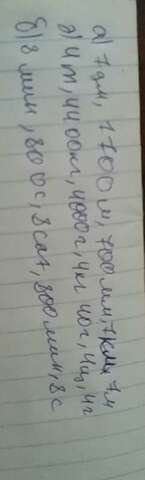 а) 7 дм, 1700 м, 700 мм, 7 км, 7 м
д) 4 т, 4400 кг, 4000 г, 4 кг 40 г, 4 ц, 4 г
б) 8 мин, 80 с, 8 сат, 800 мин, 8 с